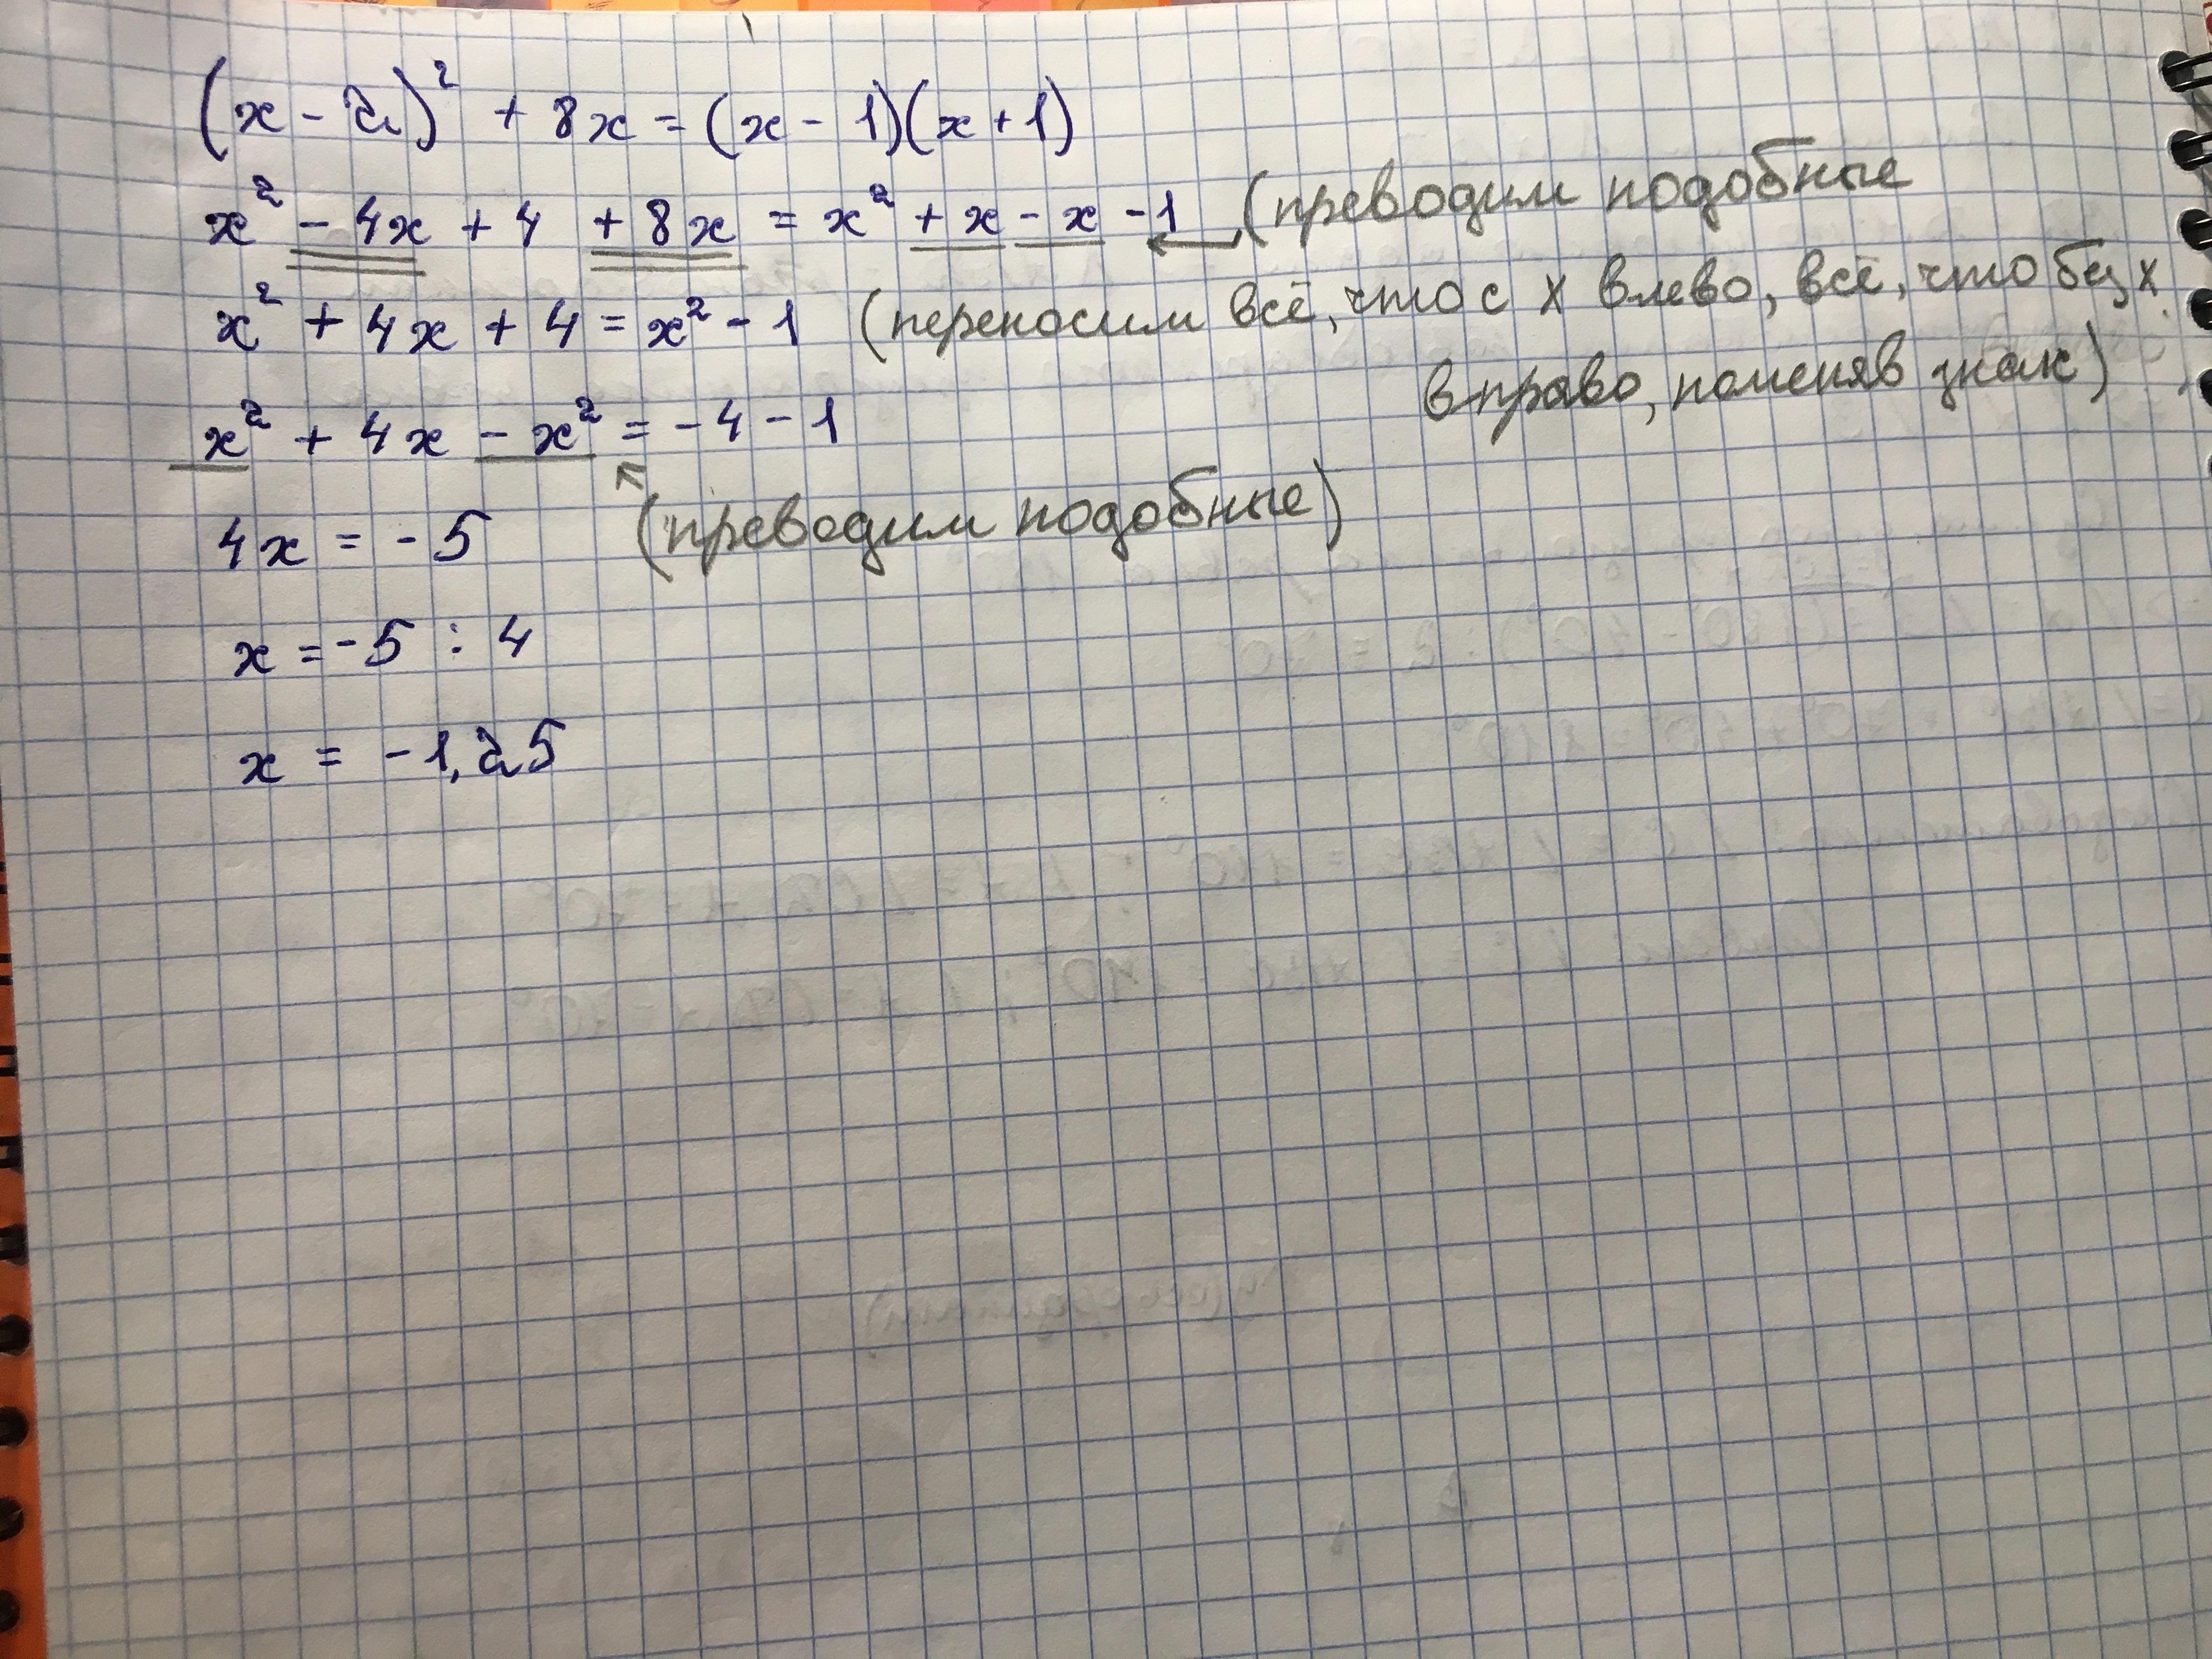 (x - 2)² + 8x = (x - 1)(x + 1)
x² - 4x + 4 + 8x = x² + x - x - 1 (преводим подобные
x² + 4x + 4 = x² - 1 (переносим всё, что с x влево, всё, что без x
вправо, поменяв знак)
x² + 4x - x² = -4 - 1
4x = -5 (преводим подобные)
x = -5 : 4
x = -1,25